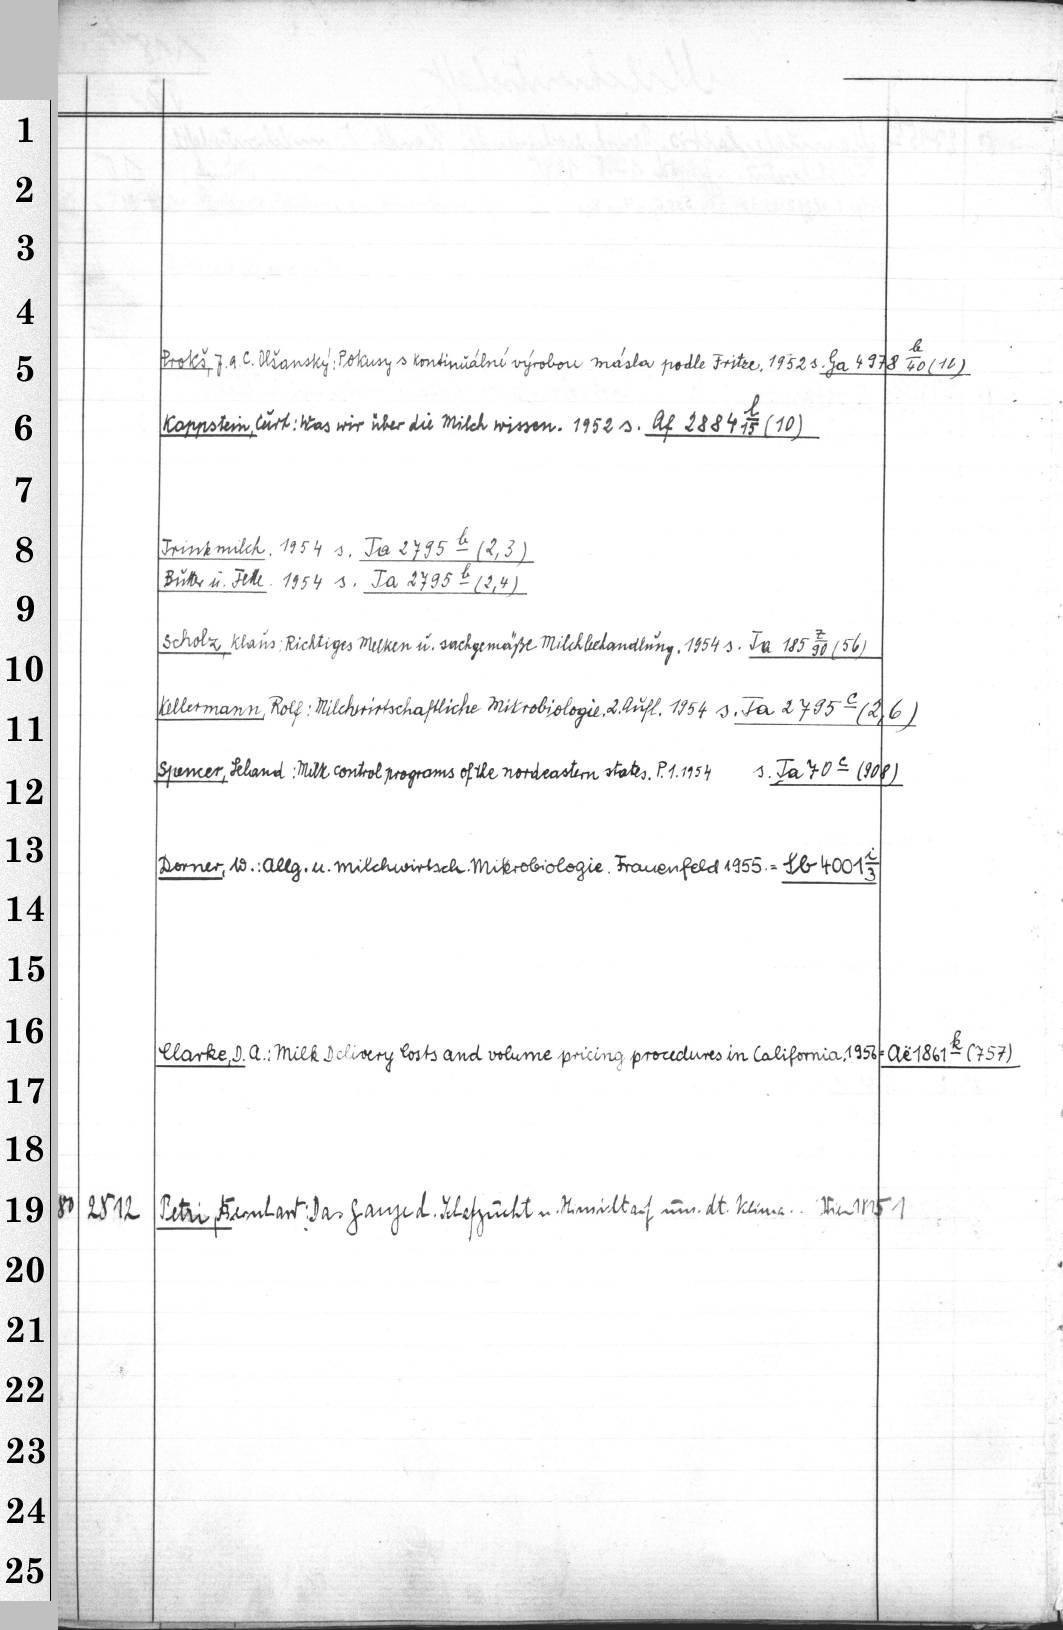 1
2
3
4
5 Prokš, J. a. C. Olšanský: Pokusy s kontinuálné výrobou másla podle Fritze. 1952 s. Ga 4978 b/40 (16)
6 Kappstein, Curt: Was wir über die Milch wissen. 1952 s. Af 2884 l/15 (10)
7
8 Trinkmilch. 1954 s. Ta 2795 b (2,3)
Butter u. Fette. 1954 s. Ta 2795 b (2,4)
9
Scholz, Klaus: Richtiges Melken u. sachgemäße Milchbehandlung. 1954 s. Ta 185 z/90 (56)
10
Kellermann, Rolf: Milchwirtschaftliche Mikrobiologie. 2. Aufl. 1954 s. Ta 2795 c (2,6)
11
Spencer, Leland: Milk control programs of the nordeastern states. P.1. 1954 s. Ta 70 c (908)
12
13
Dorner, W.: Allg. u. milchwirtsch. Mikrobiologie. Frauenfeld 1955. = Lb 4001 i/3
14
15
16
Clarke, D. A.: Milk Delivery Costs and volume pricing procedures in California. 1956 = Aë 1861 k (757)
17
18
19 80 2812 Petri, Bernhart: Das Ganze d. Schafzucht u. auf uns. dt. Klima.. Wien
20
21
22
23
24
25